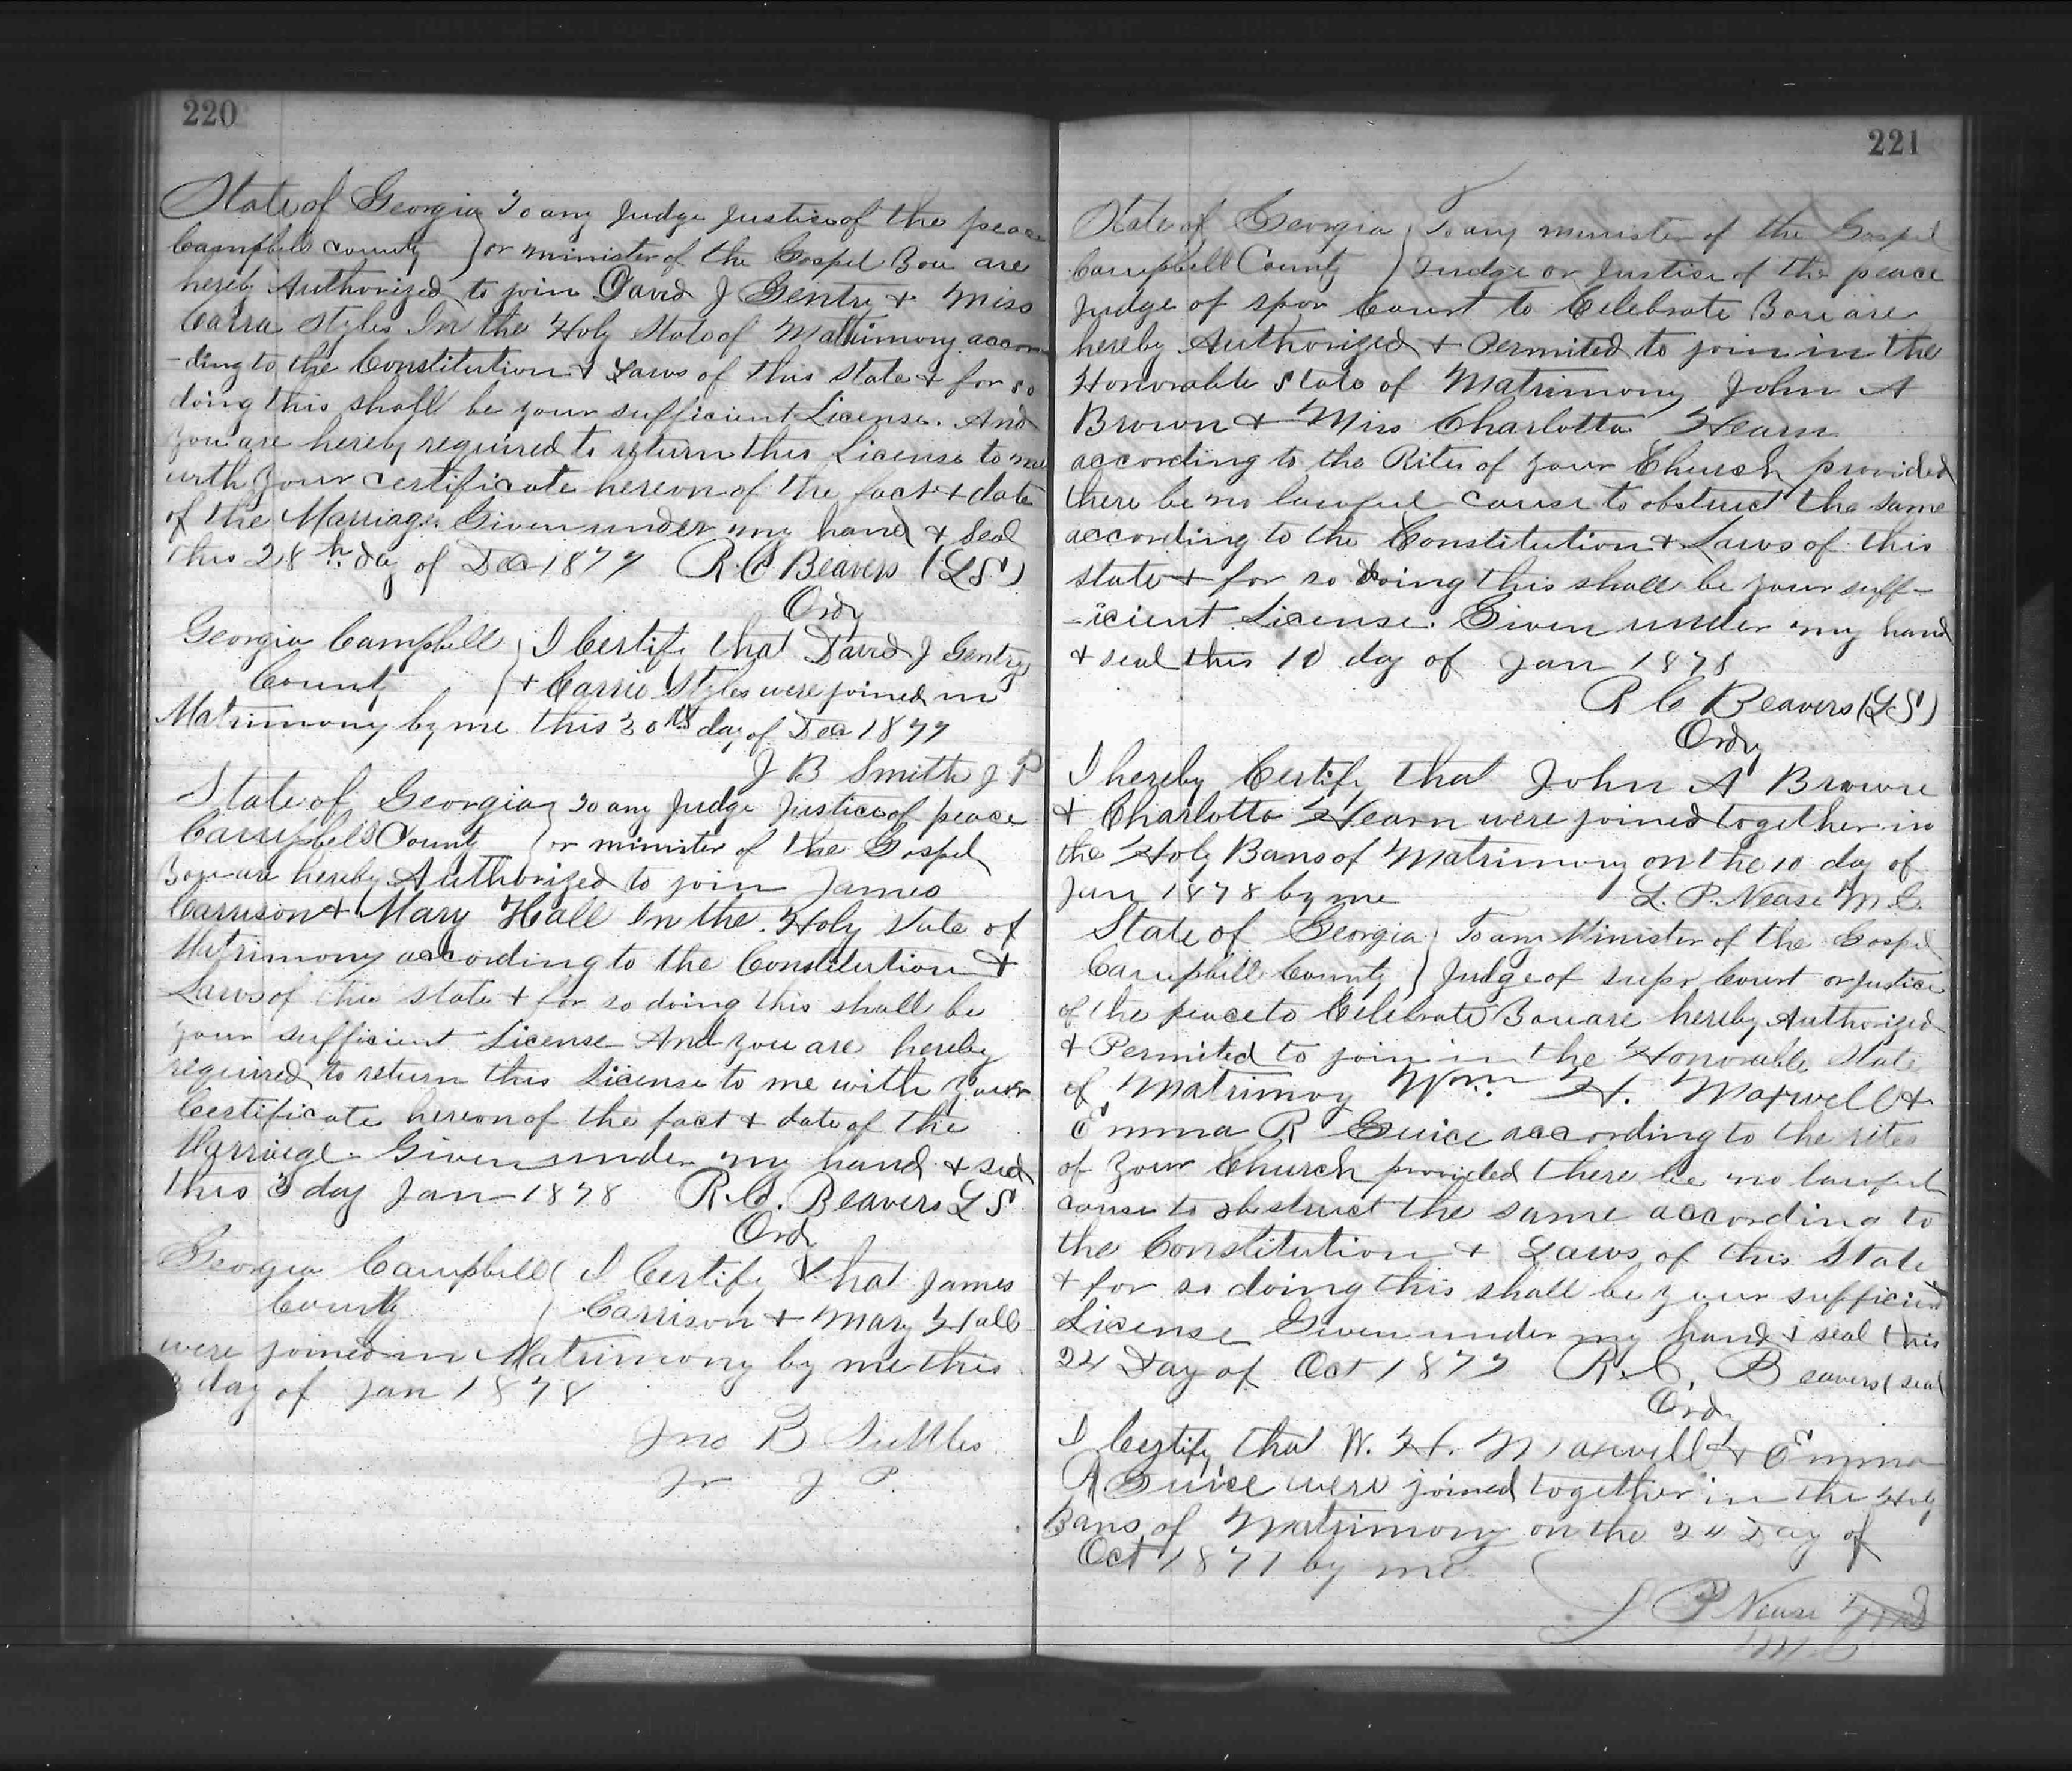 220
State of Georgia } To any Judge Justice of the peace
Campbell County } or minister of the Gospel You are
hereby Authorized to join David J Gentry & Miss
Carra Styles In the Holy State of Mattrimony accor
-ding to the Constitution & Laws of this State & for so
doing this shall be your sufficient License. And
you are hereby required to return this License to me
with your certificate hereon of the fact & date
of the Marriage. Given under my hand & Seal
this 28th day of Dec 1877 R. C Beavers (LS)
Ordy
Georgia Campbell } I Certify that David J Gentry
County } & Carrie Styles were joined in
Matrimony by me this 30th day of Dec 1877
J B Smith J P
State of Georgia } To any Judge Justice of peace
Campbell County } or minister of the Gospel
You are hereby Authorized to join James
Carrison & Mary Hall In the Holy State of
Matrimony according to the Constitution &
Laws of this state & for so doing this shall be
your sufficient License And you are hereby
required to return this License to me with your
Certificate hereon of the fact & date of the
Marriage. Given under my hand & seal
this 3 day Jan 1878 R. C. Beavers L S
Ord
Georgia Campbell } I Certify that James
County } Carrison & Mary Hall
were joined in Matrimony by me this
3 day of Jan 1878
Jno B Suttles
Jr J P.
221
State of Georgia } To any minister of the Gospel
Campbell County } Judge or Justice of the peace
Judge of spor Court to Celebrate You are
hereby Authorized & Permited to join in the
Honorable State of Matrimony John A
Brown & Miss Charlotta Hearn
according to the Rites of your Church provided
there be no lawful cause to obstruct the same
according to the Constitution & Laws of this
state & for so doing this shall be your suff-
-icient License. Given under my hand
& seal this 10 day of Jan 1878
R C Beavers (LS)
Ordy
I hereby Certify that John A Brown
& Charlotta Hearn were joined together in
the Holy Bans of Matrimony on the 10 day of
Jan 1878 by me L. P. Nease M G.
State of Georgia } To any Minister of the Gospel
Campbell County } Judge of supr Court or Justice
of the peace to Celebrate You are hereby Authorized
& Permited to join in the Honorable State
of Matrimoy Wm. H. Maxwell &
Emma R Guice according to the rites
of your Church provided there be no lawful
cause to obstruct the same according to
the Constitution & Laws of this State
& for so doing this shall be your sufficient
License Given under my hand & seal this
24 Day of Oct 1877 R. C. Beavers (seal
Ord
I Certify that W. H. Maxwell & Emma
R Guice were joined together in the Holy
Bans of Matrimony on the 24 Day of
Oct 1877 by me
L P Nease
M G